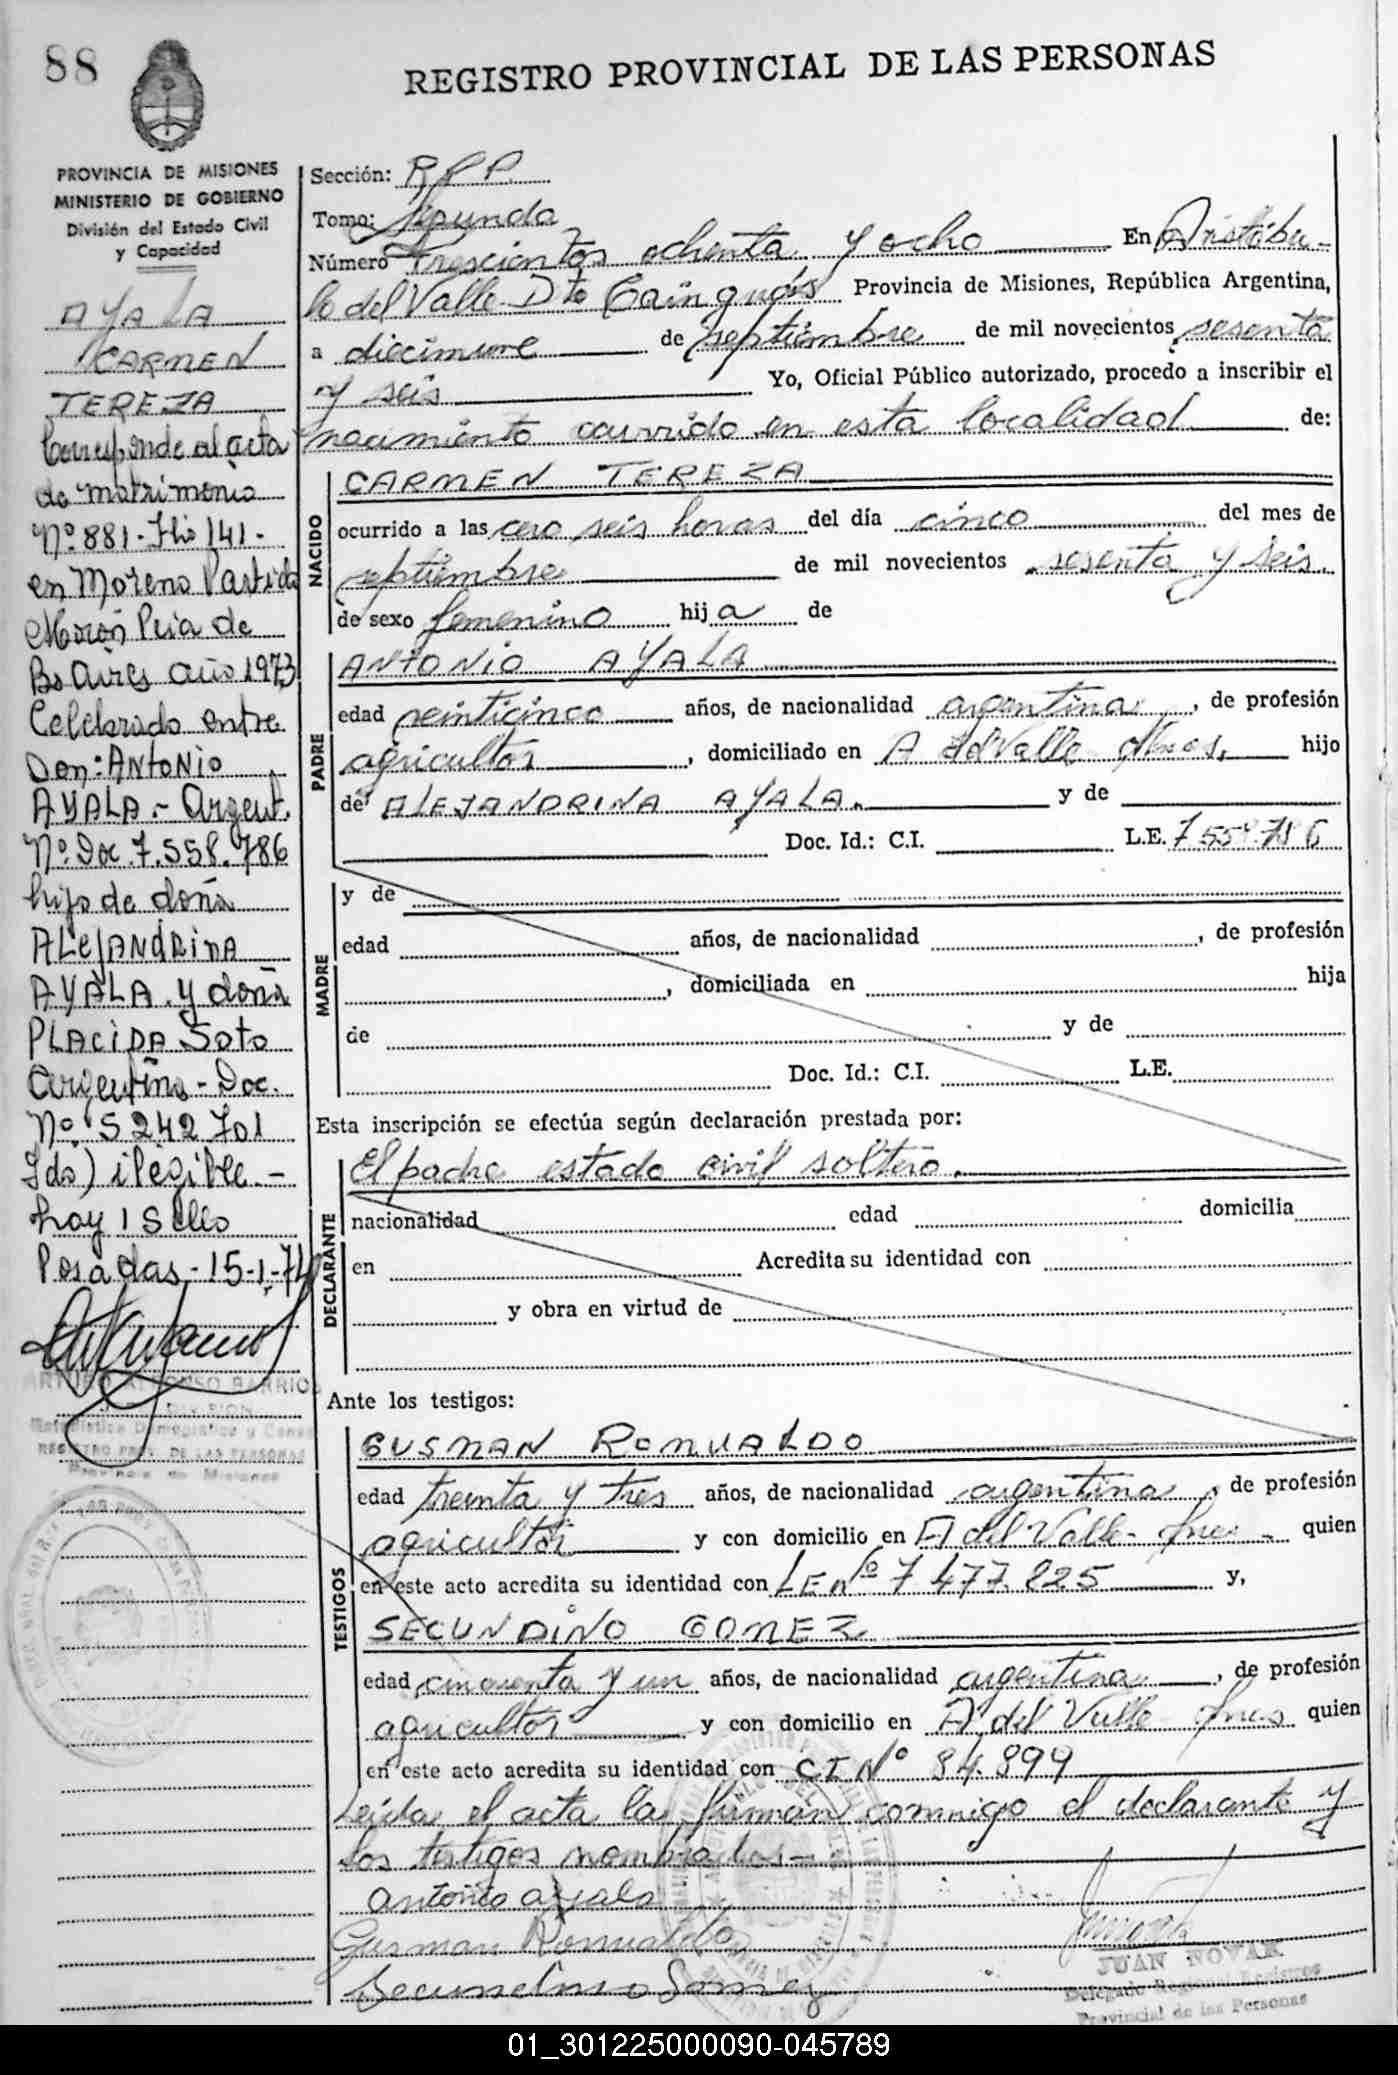 88
REGISTRO PROVINCIAL DE LAS PERSONAS
PROVINCIA DE MISIONES
MINISTERIO DE GOBIERNO
División del Estado Civil
y Capacidad
AYALA
CARMEN
TEREZA
Corresponde al acta
de matrimonio
Nº 881 - Flio 141 -
en Moreno Partido
Morón Pcia de
Bs Aires año 1973
Celebrado entre
Don: ANTONIO
AYALA - Argent.
Nº Doc 7.558.786
hijo de doña
ALEJANDRINA
AYALA y doña
PLACIDA Soto
Argentina - Doc.
Nº 5242701
Fdo) ilegible -
hay 1 Sello
Posadas - 15-1-74
ARTURO ALFONSO BARRIOS
DIVISION
Estadística Demográfica y Censo
REGISTRO PROV. DE LAS PERSONAS
Provincia de Misiones
Sección: RPP
Tomo: Segundo
Número Trescientos ochenta y ocho En Aristóbu-
lo del Valle Dto Cainguás Provincia de Misiones, República Argentina,
a diecinueve de septiembre de mil novecientos sesenta
y seis Yo, Oficial Público autorizado, procedo a inscribir el
nacimiento ocurrido en esta localidad de:
NACIDO
CARMEN TEREZA
ocurrido a las cero seis horas del día cinco del mes de
septiembre de mil novecientos sesenta y seis
de sexo femenino hija de
PADRE
ANTONIO AYALA
edad veinticinco años, de nacionalidad argentina, de profesión
agricultor, domiciliado en A del Valle Mnes, hijo
de ALEJANDRINA AYALA. y de
Doc. Id.: C.I. L.E. 7 558.786
MADRE
y de
edad años, de nacionalidad , de profesión
, domiciliada en hija
de y de
Doc. Id.: C.I. L.E.
Esta inscripción se efectúa según declaración prestada por:
DECLARANTE
El padre estado civil soltero.
nacionalidad edad domicilia
en Acredita su identidad con
y obra en virtud de
Ante los testigos:
TESTIGOS
GUSMAN ROMUALDO
edad treinta y tres años, de nacionalidad argentina, de profesión
agricultor y con domicilio en A del Valle - Mnes - quien
en este acto acredita su identidad con LE nº 7.477.825 y,
SECUNDINO GOMEZ
edad cincuenta y un años, de nacionalidad argentina, de profesión
agricultor y con domicilio en A del Valle Mnes quien
en este acto acredita su identidad con CI Nº 84.899
Leida el acta la firman conmigo el declarante y
los testigos nombrados -
antonio ayala
Gusman Romualdo
Secundino Gomez
JUAN NOWAK
Delegado Regional Registros
Provincial de las Personas
01_301225000090-045789